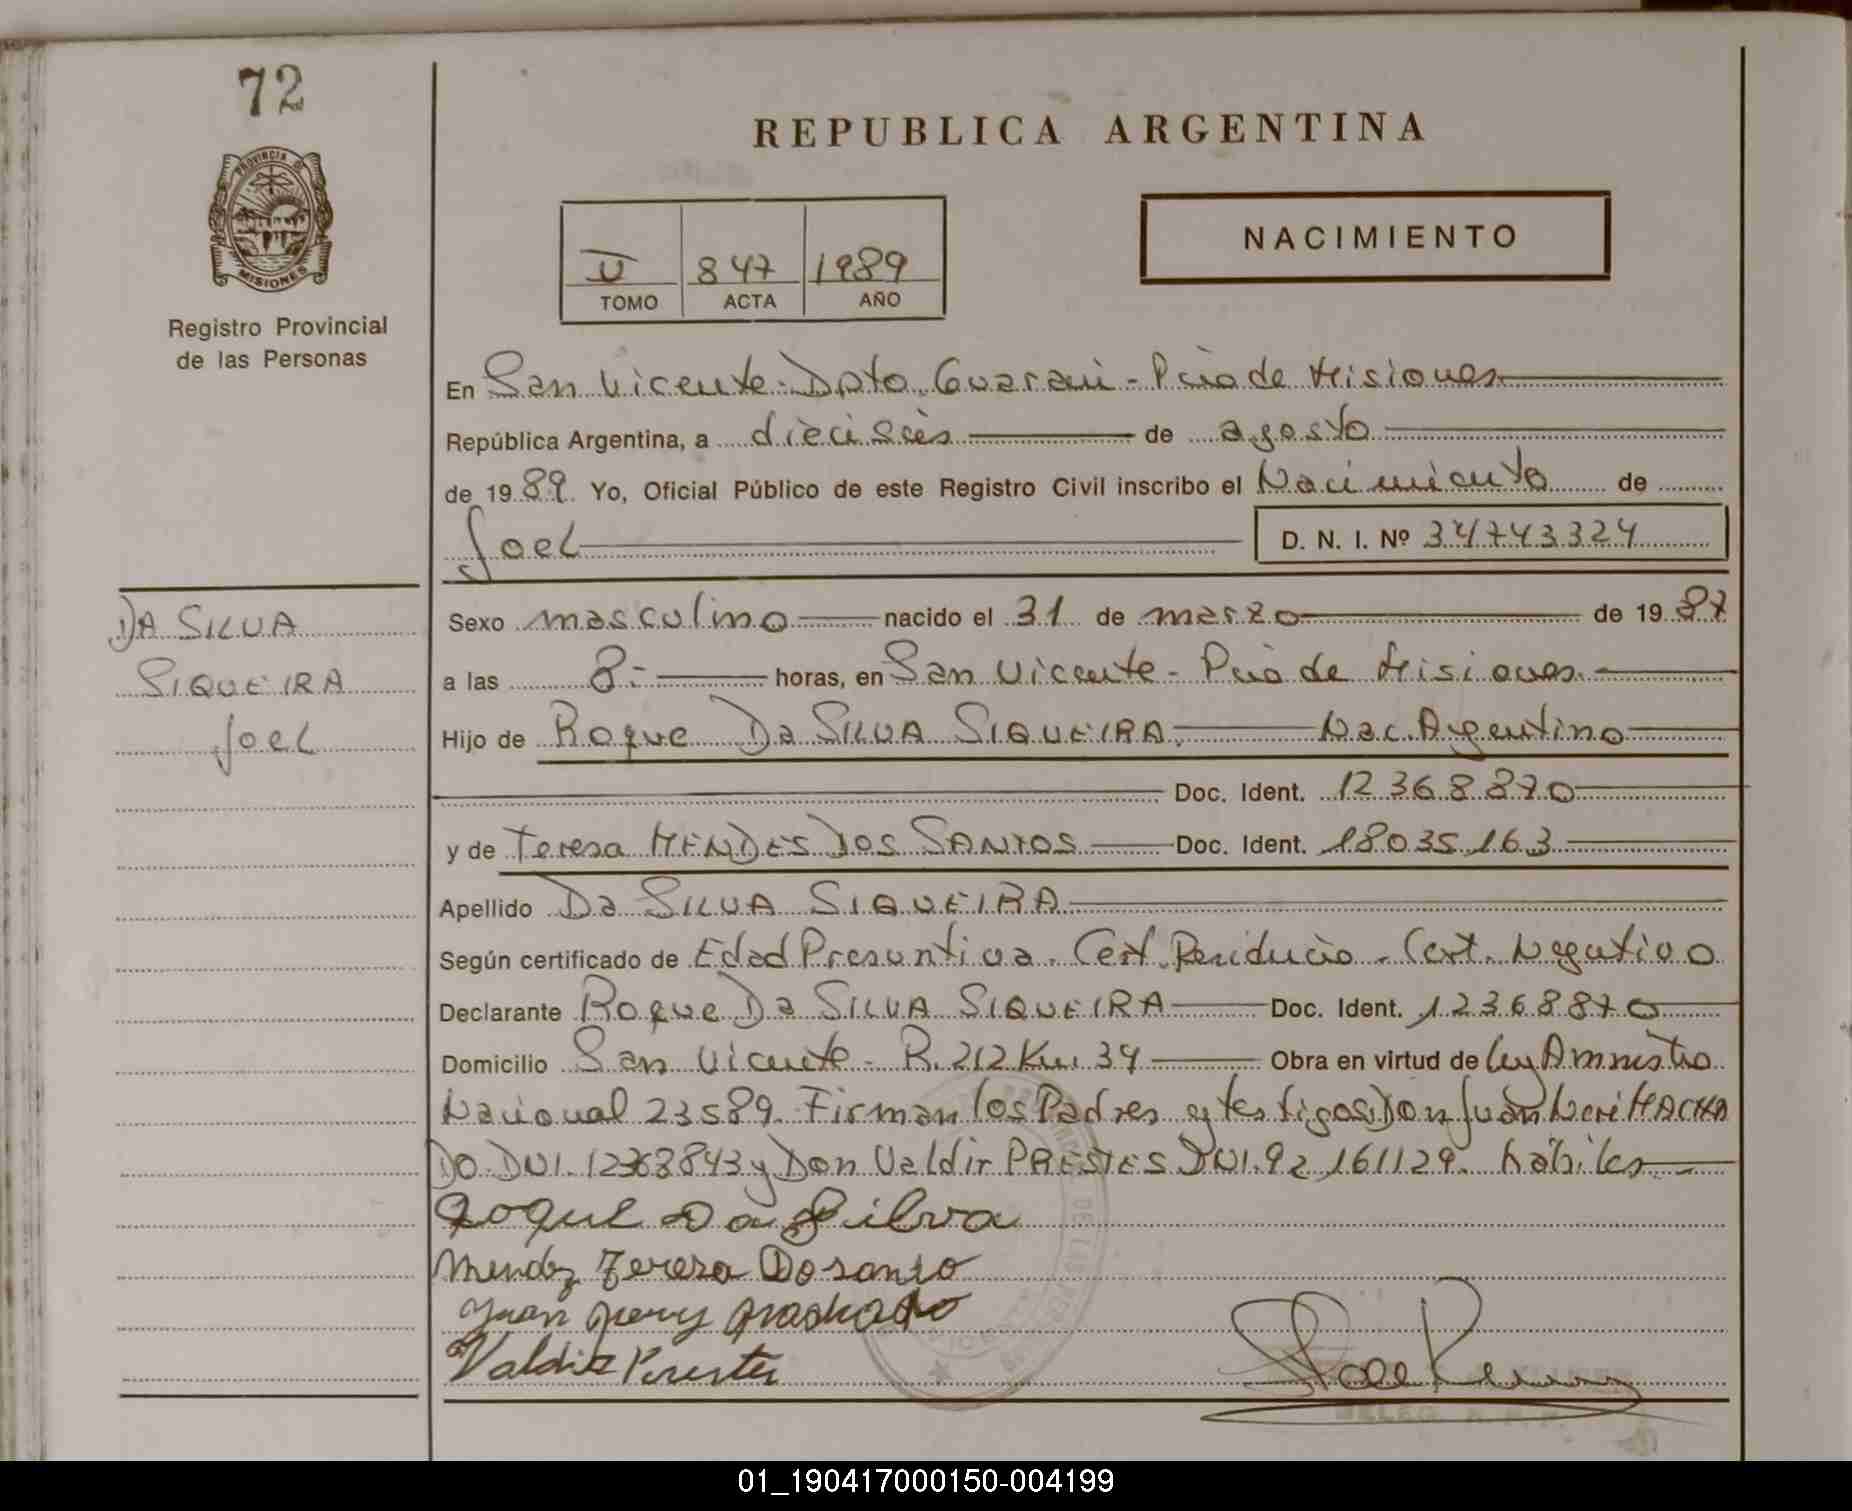 72
REPUBLICA ARGENTINA
PROVINCIA D
MISIONES
Registro Provincial
de las Personas
NACIMIENTO
847 1989
TOMO ACTA AÑO
En San Vicente-Dpto. Guarani-Pcia de Misiones
República Argentina, a dieciseis de agosto
de 1989. Yo, Oficial Público de este Registro Civil inscribo el Nacimiento de
Joel D. N. I. Nº 34743324
DA SILVA
SIQUEIRA
Joel
Sexo masculino nacido el 31 de marzo de 1987
a las 8:- horas, en San Vicente- Pcia de Misiones.
Hijo de Roque Da SILVA SIQUEIRA. Nac. Argentino
Doc. Ident. 12368870
y de Teresa MENDES DOS SANTOS Doc. Ident. 18035163
Apellido Da SILVA SIQUEIRA
Según certificado de Edad Presuntiva. Cert. Cert. Negativo
Declarante Roque Da SILVA SIQUEIRA Doc. Ident. 12368870
Domicilio San Vicente- R. 212 Km 34 Obra en virtud de Ley
Nacional 23589. Firman los Padres y testigos Don Juan Neri MACHA
DO. DNI. 12368843 y Don Valdir PRESTES DNI. 92161129. hábiles
Roque Da Silva
Mendez Teresa Dosanto
Juan
Valdir
01_190417000150-004199